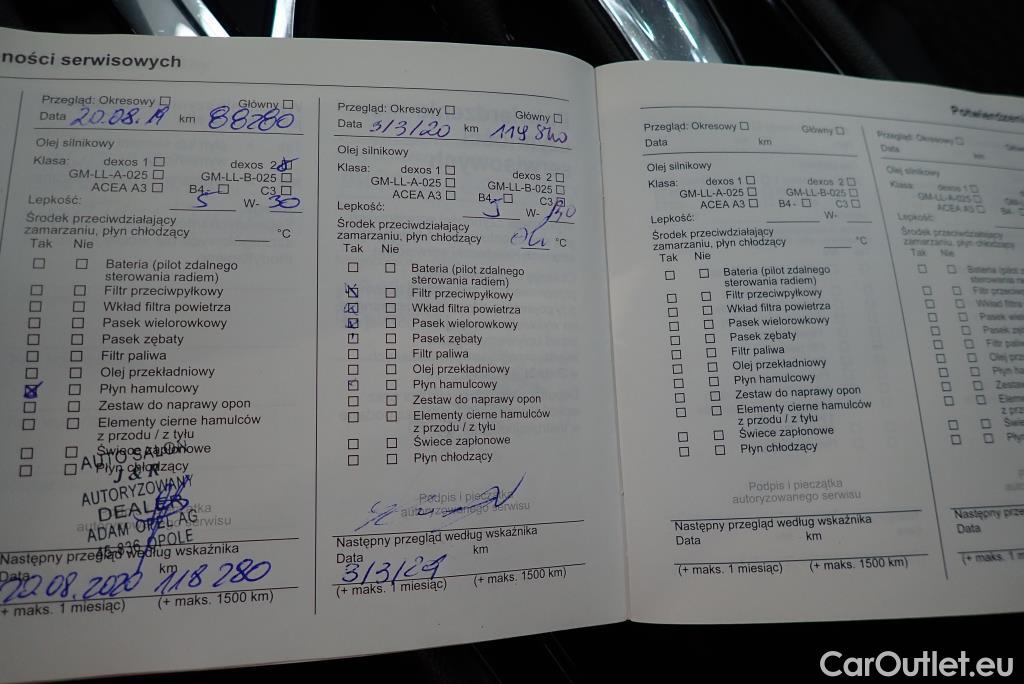 ności serwisowych
Przegląd: Okresowy Główny
Data 20.08.19 km 88280
Olej silnikowy
Klasa: dexos 1 dexos 2
GM-LL-A-025 GM-LL-B-025
ACEA A3 B4 - C3
Lepkość: 5 W- 30
Środek przeciwdziałający
zamarzaniu, płyn chłodzący °C
Tak Nie
Bateria (pilot zdalnego
sterowania radiem)
Filtr przeciwpyłkowy
Wkład filtra powietrza
Pasek wielorowkowy
Pasek zębaty
Filtr paliwa
Olej przekładniowy
Płyn hamulcowy
Zestaw do naprawy opon
Elementy cierne hamulców
z przodu / z tyłu
Świece zapłonowe
Płyn chłodzący
AUTO SALON
J & R
AUTORYZOWANY
DEALER
ADAM OPEL AG
45-836 OPOLE
autoryzowanego serwisu
Następny przegląd według wskaźnika
Data km
20.08.2020 118 280
(+ maks. 1 miesiąc) (+ maks. 1500 km)
Przegląd: Okresowy Główny
Data 3/3/20 km
Olej silnikowy
Klasa: dexos 1 dexos 2
GM-LL-A-025 GM-LL-B-025
ACEA A3 B4 - C3
Lepkość: 5 W- 30
Środek przeciwdziałający
zamarzaniu, płyn chłodzący °C
Tak Nie
Bateria (pilot zdalnego
sterowania radiem)
Filtr przeciwpyłkowy
Wkład filtra powietrza
Pasek wielorowkowy
Pasek zębaty
Filtr paliwa
Olej przekładniowy
Płyn hamulcowy
Zestaw do naprawy opon
Elementy cierne hamulców
z przodu / z tyłu
Świece zapłonowe
Płyn chłodzący
Podpis i pieczątka
autoryzowanego serwisu
Następny przegląd według wskaźnika
Data km
3/3/21
(+ maks. 1 miesiąc) (+ maks. 1500 km)
Przegląd: Okresowy Główny
Data km
Olej silnikowy
Klasa: dexos 1 dexos 2
GM-LL-A-025 GM-LL-B-025
ACEA A3 B4 - C3
Lepkość: W-
Środek przeciwdziałający
zamarzaniu, płyn chłodzący °C
Tak Nie
Bateria (pilot zdalnego
sterowania radiem)
Filtr przeciwpyłkowy
Wkład filtra powietrza
Pasek wielorowkowy
Pasek zębaty
Filtr paliwa
Olej przekładniowy
Płyn hamulcowy
Zestaw do naprawy opon
Elementy cierne hamulców
z przodu / z tyłu
Świece zapłonowe
Płyn chłodzący
Podpis i pieczątka
autoryzowanego serwisu
Następny przegląd według wskaźnika
Data km
(+ maks. 1 miesiąc) (+ maks. 1500 km)
Potwierdzeni
Przegląd: Okresowy
Data km
Olej silnikowy
Klasa: dexos 1
GM-LL-A-025
ACEA A3
Lepkość:
Środek przeciwdziałający
zamarzaniu, płyn chłodz
Tak Nie
Bateria (pilot
sterowania
Filtr przeciw
Wkład filtra
Pasek wie
Pasek zę
Filtr pali
Olej prz
Płyn ha
Zestaw
Eleme
z prz
Świe
Płyn
Następny prze
Data
(+ maks. 1 m
CarOutlet.eu